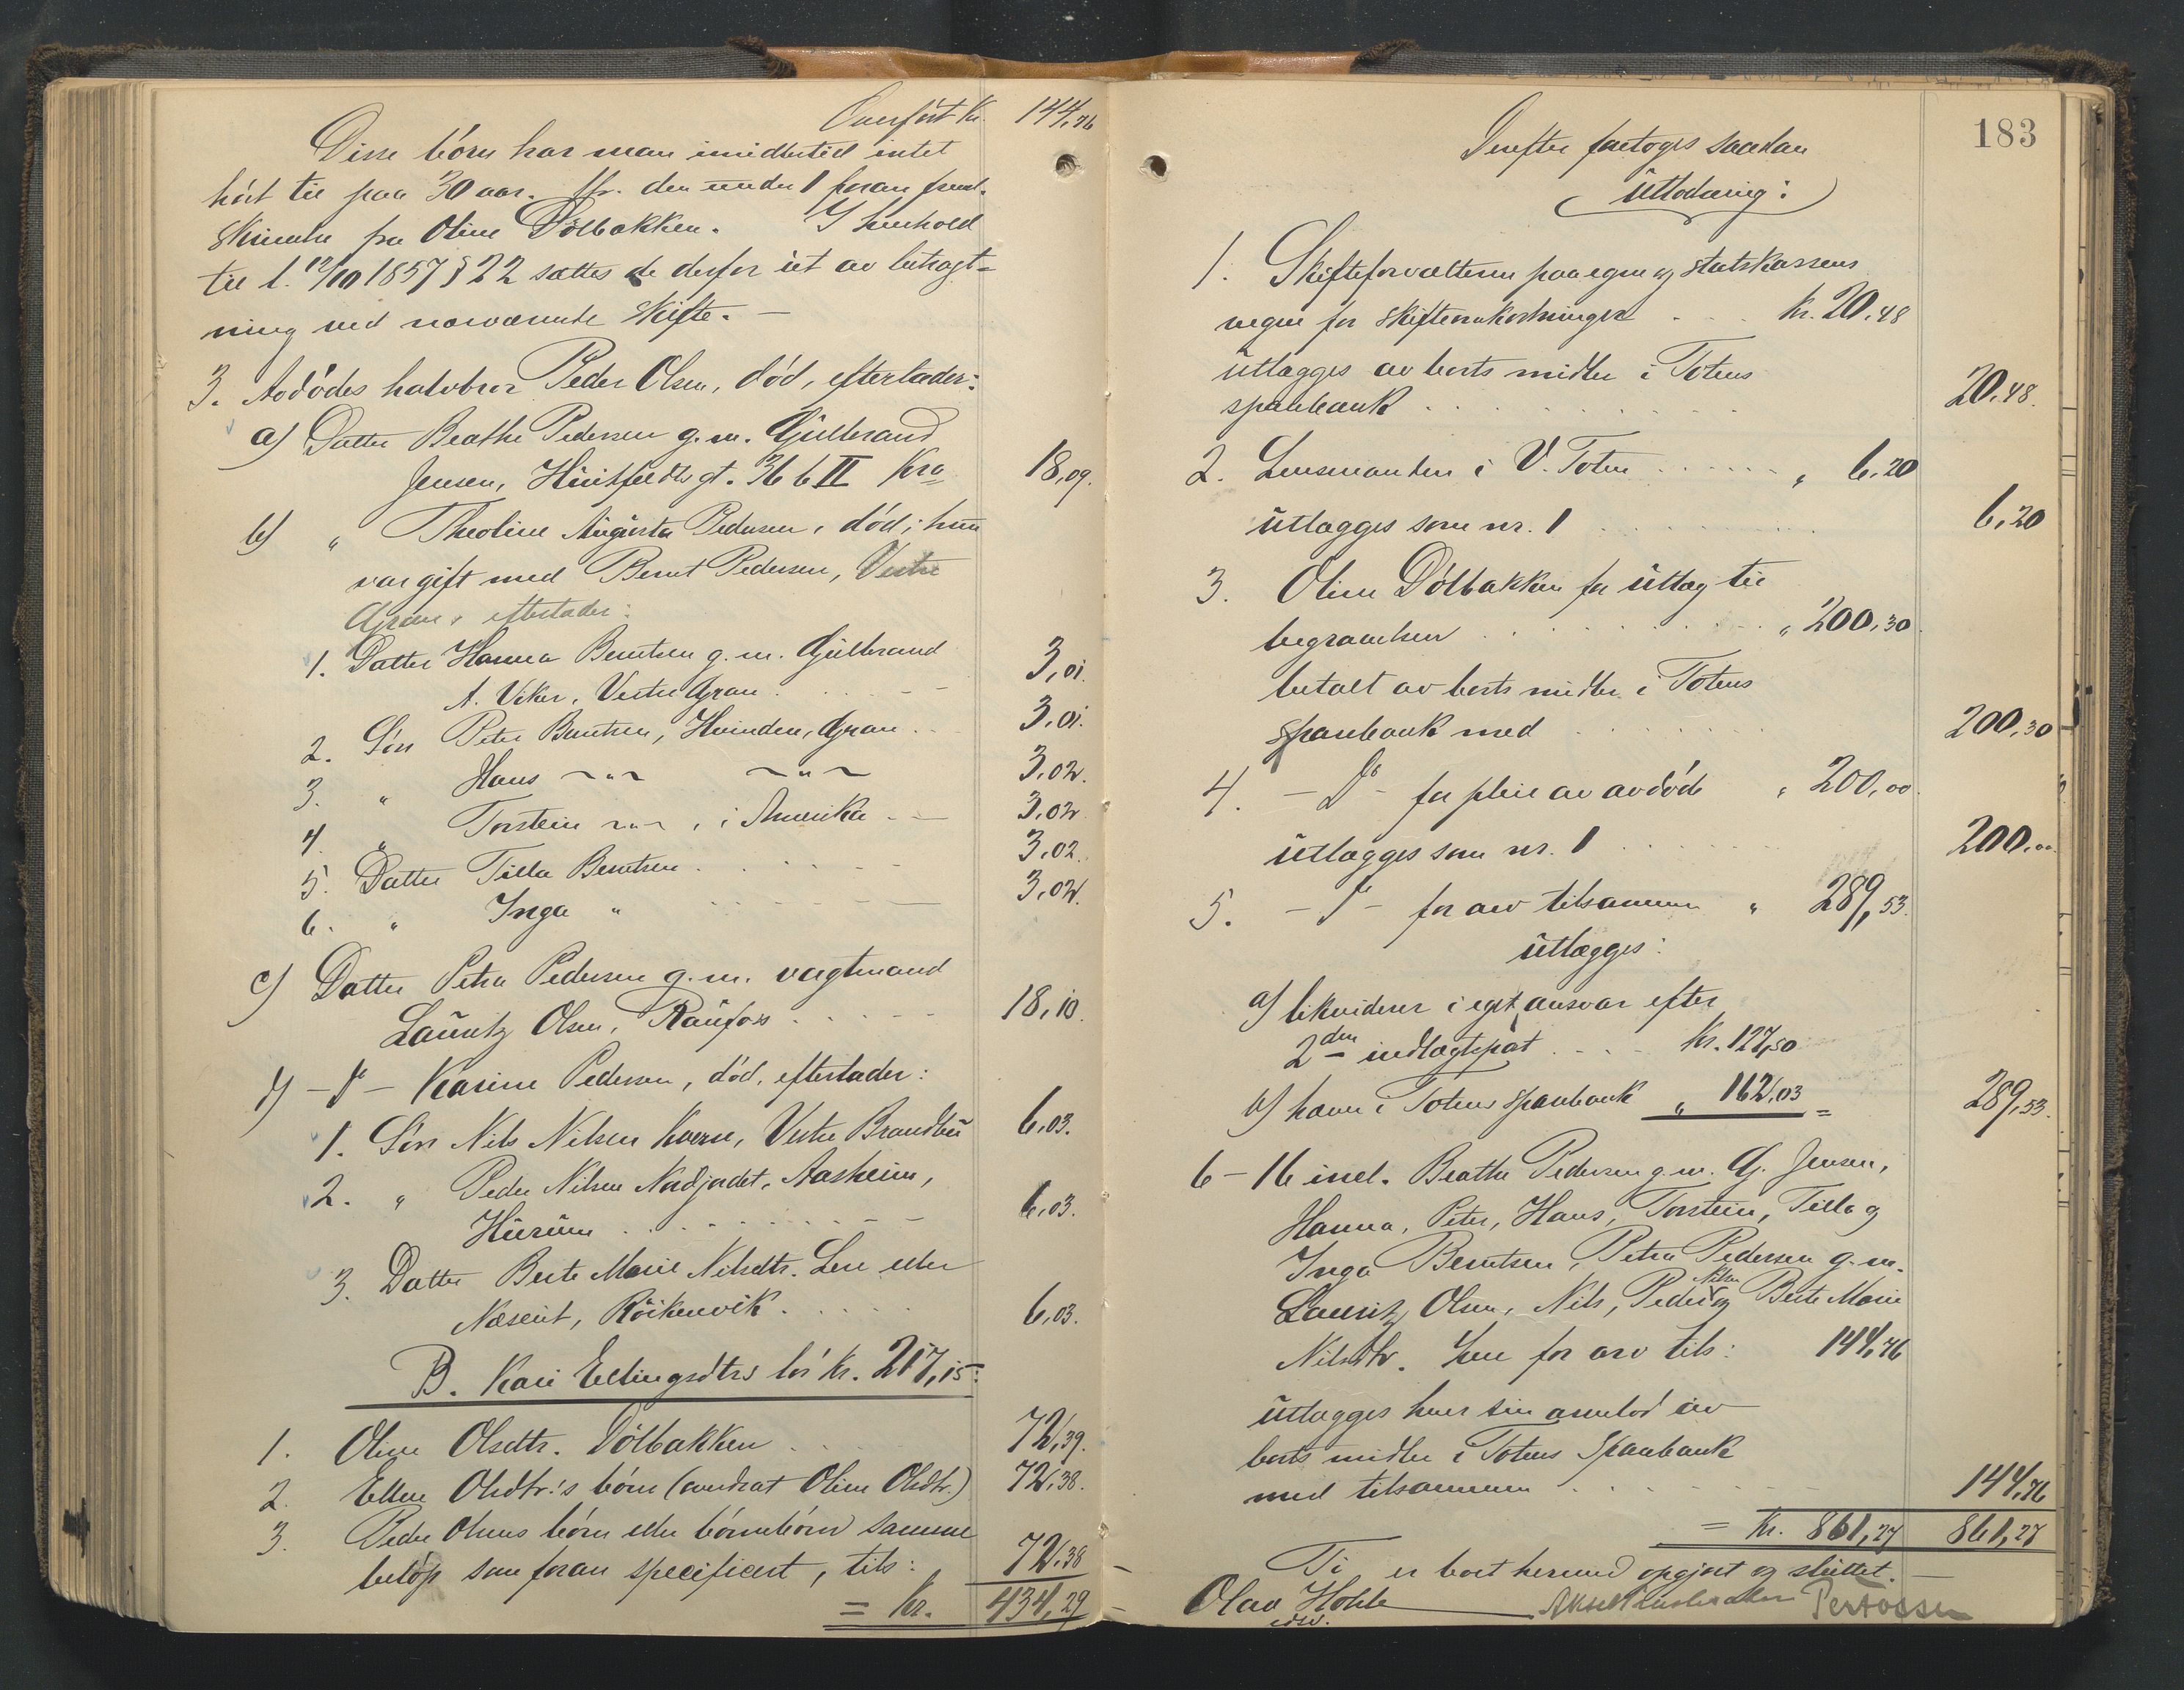 Overført Kr. 144,76
Disse børn har man imidlertid intet
hørt til paa 30 aar. Cfr. den under 1 foran frem-
skrivelse fra Oline Dølbakken. I henhold
til l. 12/10 1857 § 22 sættes de derfor ut av betragt-
ning ved nærværende skifte. —
3. Avdødes halvbror Peder Olsen, død, efterlader:
a) Datter Beathe Pedersen g.m. Gulbrand
Jensen, Huitfeldts gt. 36 b II Kra 18,09.
b) " Theoline Augusta Pedersen, død; hun
var gift med Bernt Pedersen, Vestre
Gran, efterlader:
1. Datter Hanna Berntsen g.m. Gulbrand
A. Viker, Vestre Gran 3,01.
2. Søn Peter Berntsen, Hvinden, Gran 3,01.
3. " Hans -"- -"- 3,02.
4. " Torstein -"-, i Amerika 3,02
5. Datter Tilla Berntsen 3,02.
6. " Inga " 3,02.
c) Datter Petra Pedersen g.m. vagtmand
Lauritz Olsen, Raufoss 18,10.
d) - Do - Karine Pedersen, død, efterlader:
1. Søn Nils Nilsen Kværn, Vestre Brandbu 6,03.
2. " Peder Nilsen Nordjordet, Aasheim,
Hurum 6,03.
3. Datter Berte Marie Nilsdtr. Lere eller
Næsent, Røikenvik 6,03.
B. Kari Ellingsdtrs lod Kr. 217,15:
1. Oline Olsdtr. Dølbakken 72,39.
2. Ellen Olsdtr.'s børn (undtat Oline Olsdtr.) 72,38.
3. Peder Olsens børn eller børnebørn samme
beløp som foran specificert, tils: 72,38
= Kr. 434,29
183
Derefter foretoges saadan
Utlodning:
1. Skifteforvalteren paa egne og statskassens
vegne for skifteomkostninger Kr. 20,48
utlægges av boets midler i Totens
sparebank 20,48.
2. Lensmanden i V. Toten " 6,20
utlægges som nr. 1 6,20
3. Oline Dølbakken for utlæg til
begravelsen " 200,30
betalt av boets midler i Totens
sparebank med 200,30
4. - Do - for pleie av avdøde " 200,00
utlægges som nr. 1 200,00
5. - Do - for arv tilsammen " 289,53.
utlægges:
a) likviderer i eget ansvar efter
2den indlagtepat Kr. 127,50
b) havn i Totens sparebank " 162,03 = 289,53.
6 - 16 incl. Beathe Pedersen g.m. G. Jensen,
Hanna, Peter, Hans, Torstein, Tilla og
Inga Berntsen, Petra Pedersen g.m.
Lauritz Olsen, Nils, Peder Nilsen og Berte Marie
Nilsdtr. Lere for arv tils: 144,76
utlægges hver sin arvelod av
boets midler i Totens Sparebank
med tilsammen 144,76
= Kr. 861,27 861,27
Ti er boet hermed opgjort og sluttet. —
Olav Hohle
edsv.